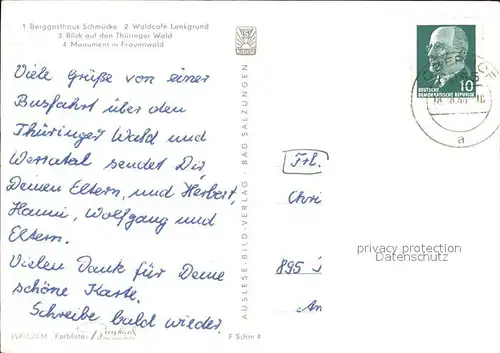 1 Berggasthaus Schmücke 2 Waldcafé Lenkgrund
3 Blick auf den Thüringer Wald
4 Monument in Frauenwald
Viele Grüße von einer
Busfahrt über den
Thüringer Wald und
Werratal sendet Dir,
Deinen Eltern, und Herbert,
Hanni, Wolfgang und
Eltern.
Vielen Dank für Deine
schöne Karte.
Schreibe bald wieder.
Farbfoto:
F Schm 4
AUSLESE-BILD-VERLAG · BAD SALZUNGEN
10
DEUTSCHE
DEMOKRATISCHE REPUBLIK
a
Frl.
Chri
895
An
privacy protection
Datenschutz